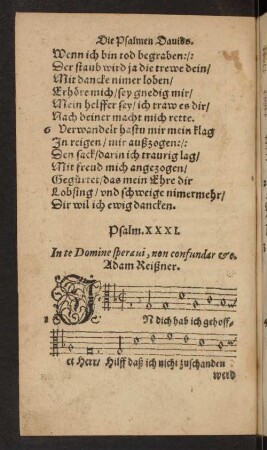 Die Psalmen Dauids.
Wenn ich bin tod begraben:/:
Der staub wird ja die trewe dein/
Mit dancke nimer loben/
Erhöre mich/ sey gnedig mir/
Mein helffer sey/ ich traw es dir/
Nach deiner macht mich rette.
6 Verwandelt hastu mir mein klag
In reigen/ mir außzogen:/:
Den sack/ darin ich traurig lag/
Mit freud mich angezogen/
Gegürtet/ das mein Ehre dir
Lobsing/ vnd schweige nimermehr/
Dir wil ich ewig dancken.
Psalm. XXXI.
In te Domine speraui, non confundar &c.
Adam Reißner.
1 IN dich hab ich gehoff-
et Herr/ Hilff daß ich nicht zuschanden
werd